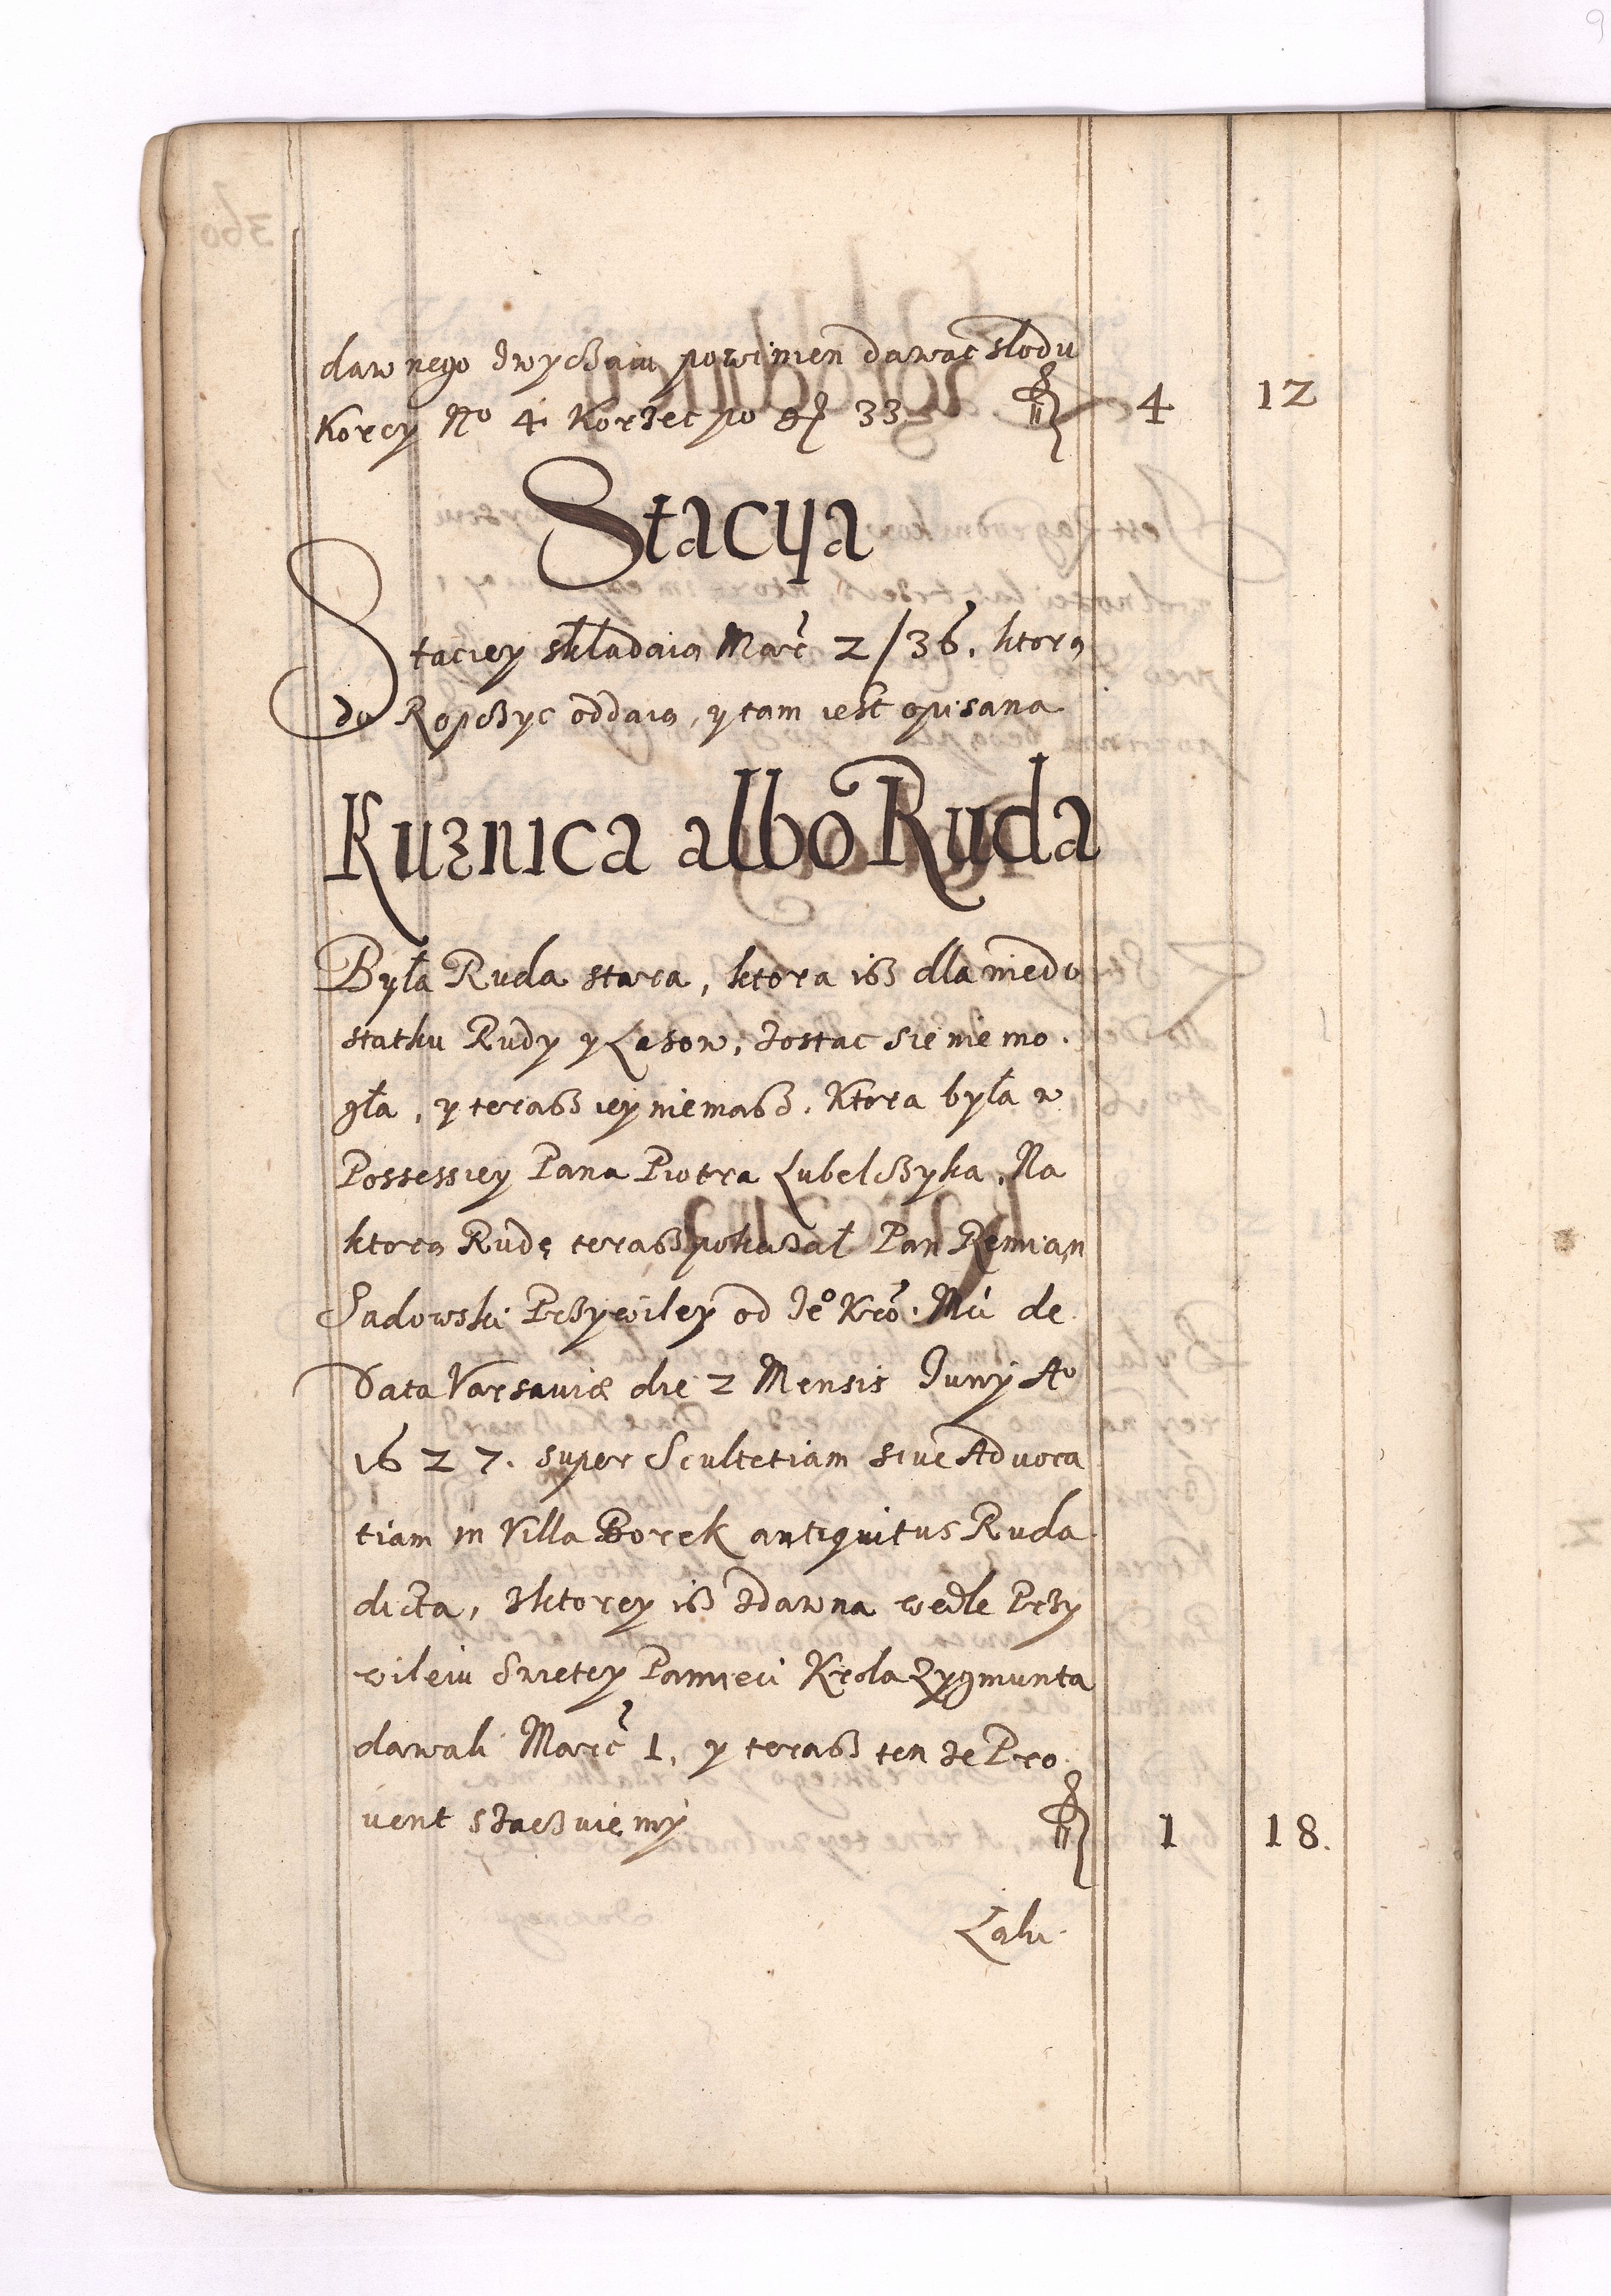 dawnego zwyczaiu powinien dawac słodu
Korcy No 4 Korzec po gr 33 4 12
Stacya
Staciey składaią Marc 2/36. ktorą
do Ropczyc oddaią, y tam iest opisana
Kuznica albo Ruda
Była Ruda stara, ktora isz dla niedo
statku Rudy y Lasow, zostac sie nie mo.
gła, y terasz iey niemasz. Ktora była w
Possessiey Pana Piotra Lubelczyka, Na
ktorą Rudę terasz pokazał Pan Remian
Sadowski Przywiley od Jeo Kro: Mci de
Data Varsaviæ die 2 Mensis Juny Ao
1627. super Scultetiam siue Aduoca
tiam in Villa Borek antiquitus Ruda
dicta, z ktorey isz zdawna wedle Przy
wileiu Swietey Pamieci Krola Zygmunta
dawali Marc 1, y terasz ten ze Pro
uent szacuiemy 1 18.
Łąki